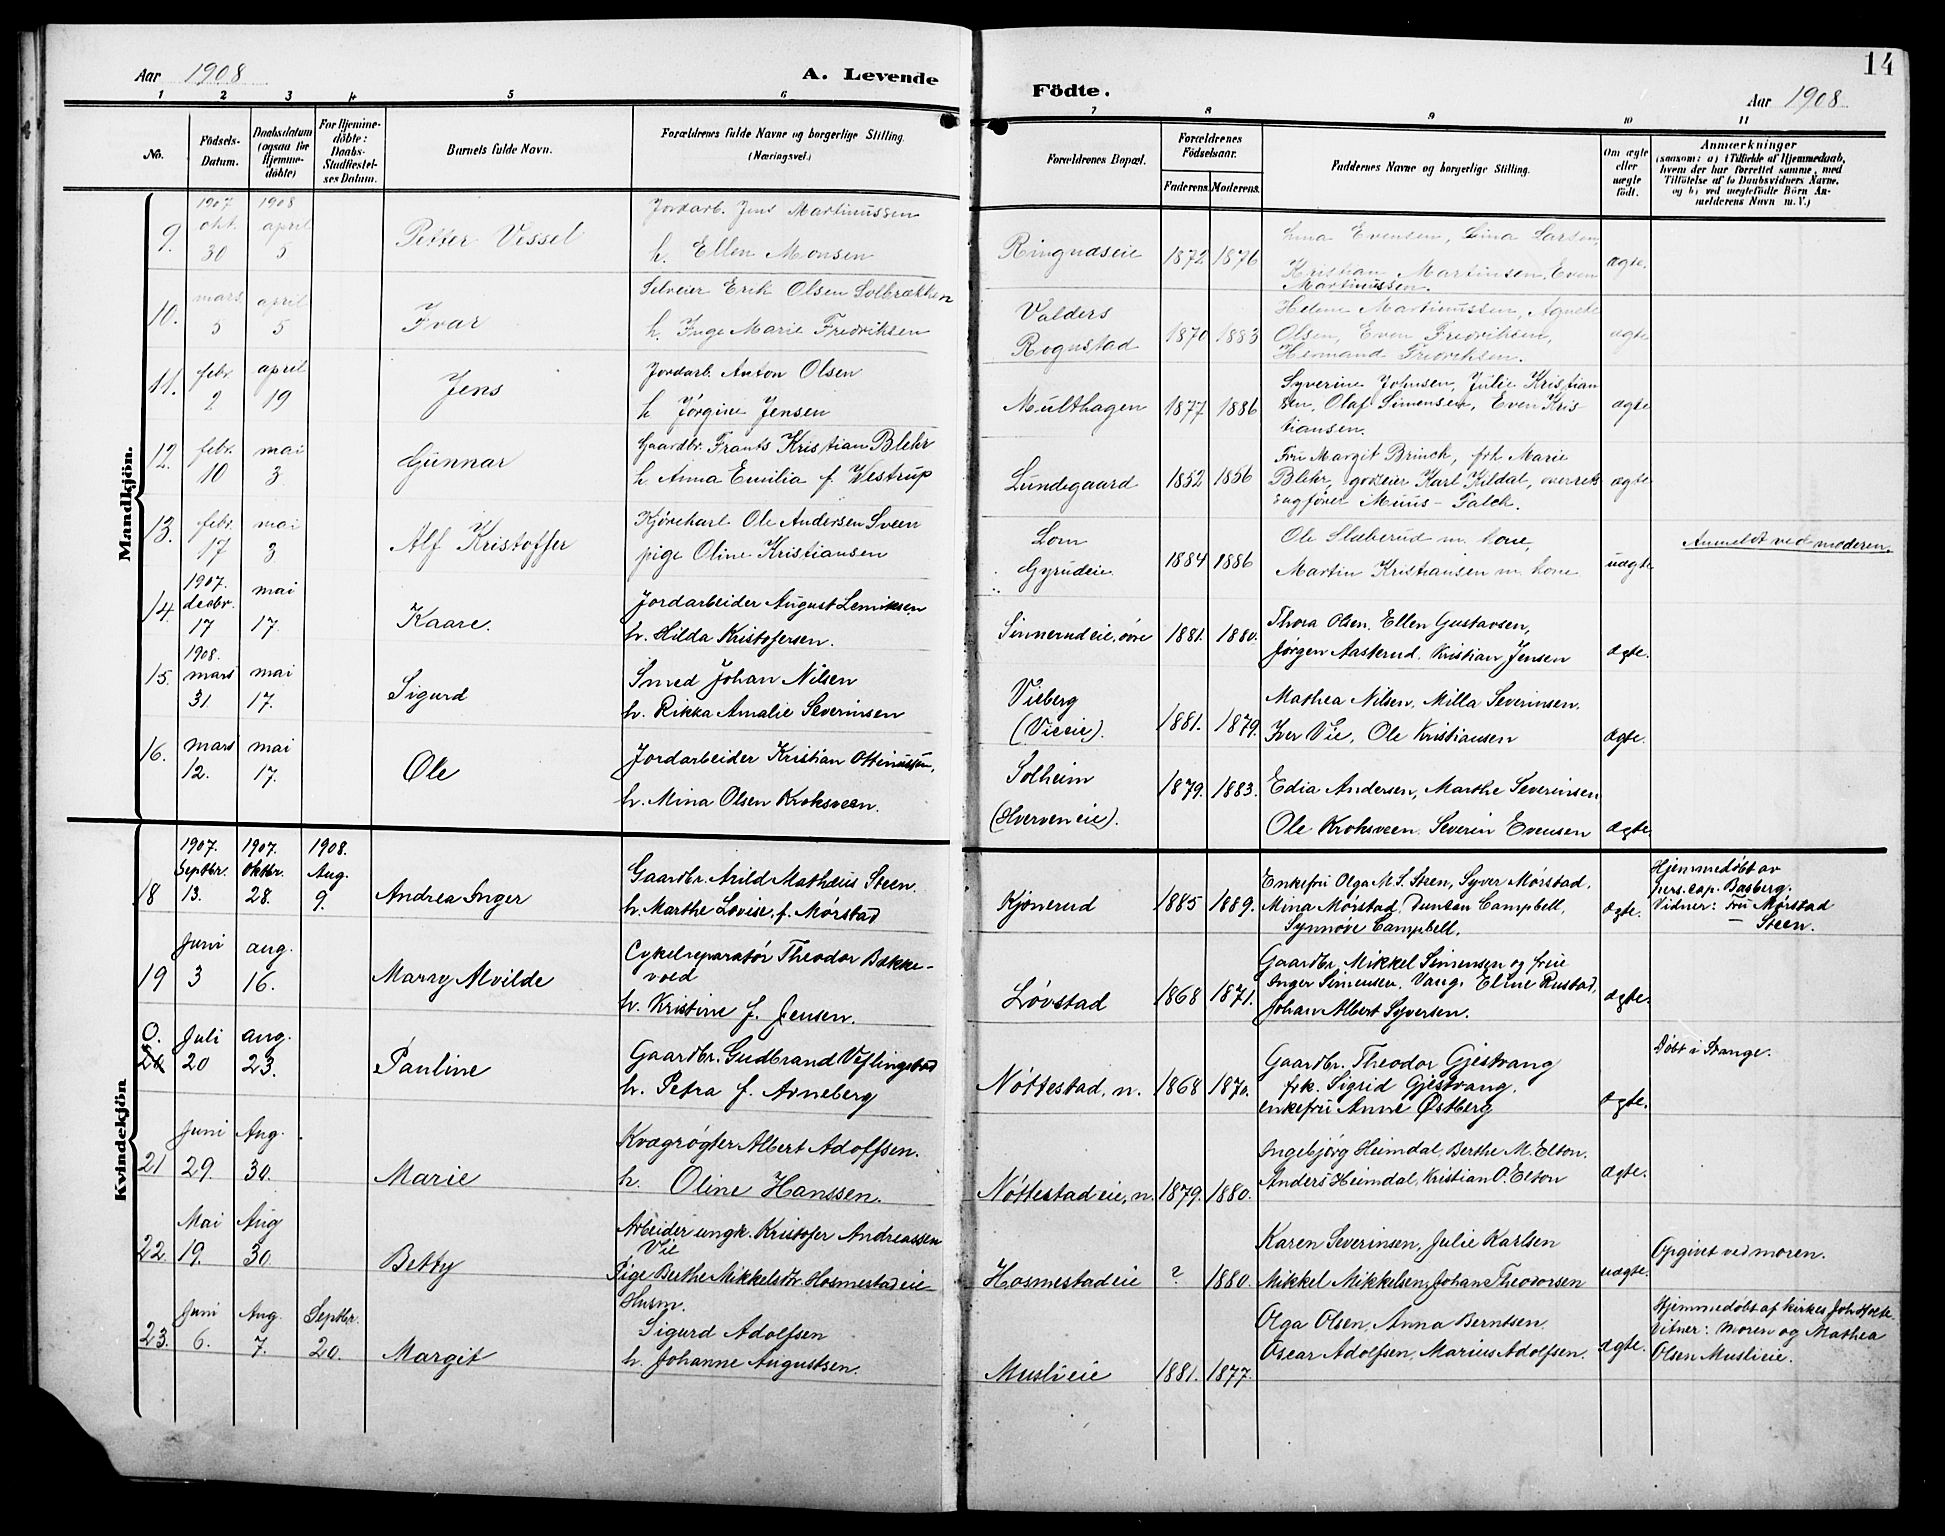 Aar 1908
A. Levende
Födte.
14
Aar 1908
1 2 3 4 5 6 7 8 9 10 11
No.
Födsels-
Datum.
Daabsdatum
(ogsaa for
Hjemme-
döbte)
For Hjemme-
döbte:
Daabs-
Stadfæstel-
ses Datum.
Barnets fulde Navn.
Forældrenes fulde Navne og borgerlige Stilling.
(Næringsvei.)
Forældrenes Bopæl.
Forældrenes
Födselsaar.
Faderens. Moderens.
Faddernes Navne og borgerlige Stilling.
Om ægte
eller
uægte
födt.
Anmærkninger
(saasom: a) i Tilfælde af Hjemmedaab,
hvem der har forrettet samme, med
Tilföielse af to Daabsvidners Navne,
og b) ved uægtefödte Börn An-
melderens Navn m. V.)
Mandkjön.
1907 1908
9. okt. 30 april 5 Petter Vessel
Jordarb. Jens Martinussen
h. Ellen Monsen
Ringnæseie 1872 1876
Lina Evensen, Lina Larsen,
Kristian Martinsen, Even
Martinussen.
ægte.
10. mars 5 april 5 Ivar
Selveier Erik Olsen Solbrækken
h. Inge Marie Fredriksen
Valders
Rognstad 1870 1883
Helene Martinussen, Agnete
Olsen, Even Fredriksen,
Hermand Fredriksen.
ægte
11. febr. 2 april 19 Jens
Jordarb. Anton Olsen
h. Jørgine Jensen
Multhagen 1877 1886
Syverine Johnsen, Julie Kristian
sen, Olaf Simensen, Even Kris-
tiansen.
ægte
12. febr. 10 mai 3 Gunnar
Gaardbr. Frants Kristian Blehr
h. Anna Emilia f. Westrup
Lundegaard 1852 1856
Fru Margit Brinch, frk Marie
Blehr, godseier Karl Kildal, overrets
sagfører Muus-Falck.
ægte
13. febr. 17 mai 3 Alf Kristoffer
Kjørekarl Ole Andersen Sveen
pige Oline Kristiansen
Lom
Gyrudeie. 1884 1886
Ole Slæberud m. kone,
Martin Kristiansen m. kone
uægte
Anmeldt ved moderen.
1907.
14. decbr. 17 mai 17. Kaare.
Jordarbeider August Lemiksen
h. Hilda Kristofersen.
Sinnerud eie, øvre 1881. 1880.
Thora Olsen. Ellen Gustavsen,
Jørgen Aasterud. Kristian Jensen
ægte.
1908.
15. mars 31 mai 17. Sigurd
Smed Johan Nilsen
h. Rikka Amalie Severinsen
Vieberg
(Vieeie). 1881. 1879.
Mathea Nilsen, Milla Severinsen.
Iver Vie, Ole Kristiansen
ægte.
16. mars 12. mai 17. Ole
Jordarbeider Kristian Ottinussen,
h. Mina Olsen Kroksveen.
Solheim
(Hverven eie). 1879. 1883.
Edia Andersen, Marthe Severinsen
Ole Kroksveen. Severin Evensen
ægte.
Kvindekjön
1907. 1907. 1908.
18 Septbr. 13. Oktbr. 28. Aug. 9. Andrea Inger
Gaardbr. Arild Mathæus Steen.
h. Marthe Lovise, f. Mørstad
Kjønerud 1885 1889.
Enkefru Olga M. S. Steen, Syver Mørstad.
Mina Mørstad, Duncan Campbell,
Synnove Campbell.
ægte.
Hjemmedøbt av
pers. cap. Basberg.
Vidner: Fru Mørstad
— Steen.
19 Juni 3 aug. 16. Marry Alvilde
Cykelreparatør Theodor Bække-
vold
h. Kristine f. Jensen.
Løvstad 1868 1871.
Gaardbr. Mikkel Simensen og frue
Inger Simensen, Vang. Eline Rustad,
Johan Albert Syversen.
ægte.
O.
20 Juli 20 aug. 23. Pauline
Gaardbr. Gudbrand Veflingstad
h. Petra f. Arneberg
Nøttestad, n. 1868 1870.
Gaardbr. Theodor Gjestvang
frk. Sigrid Gjestvang.
enkefru Anne Østberg
ægte.
Døbt i Stange.
21 Juni 29. Aug. 30. Marie
Kvægrøgter Albert Adolfsen.
h. Oline Hanssen.
Nøttestad eie, n. 1879. 1880.
Ingebjørg Heimdal, Berthe M. Elton.
Anders Heimdal, Kristian O. Elton
ægte.
22. Mai 19. Aug 30. Betty
Arbeider ungk. Kristofer Andreassen
Vie
Pige Berthe Mikkelsdtr. Hosmestad eie
Hosmestad eie ? 1880.
Karen Severinsen, Julie Karlsen
Mikkel Mikkelsen, Johan Theodorsen
uægte.
Opgivet ved moren.
23. Juni 6. Aug. 7. Septbr. 20. Margit
Husm.
Sigurd Adolfsen
h. Johanne Augustsen.
Muslieeie 1881. 1877.
Olga Olsen, Anna Berntsen.
Oscar Adolfsen, Marius Adolfsen.
ægte.
Hjemmedøbt af kirkes. Joh. Holte.
Vitner: moren og Mathea
Olsen Muslieie.